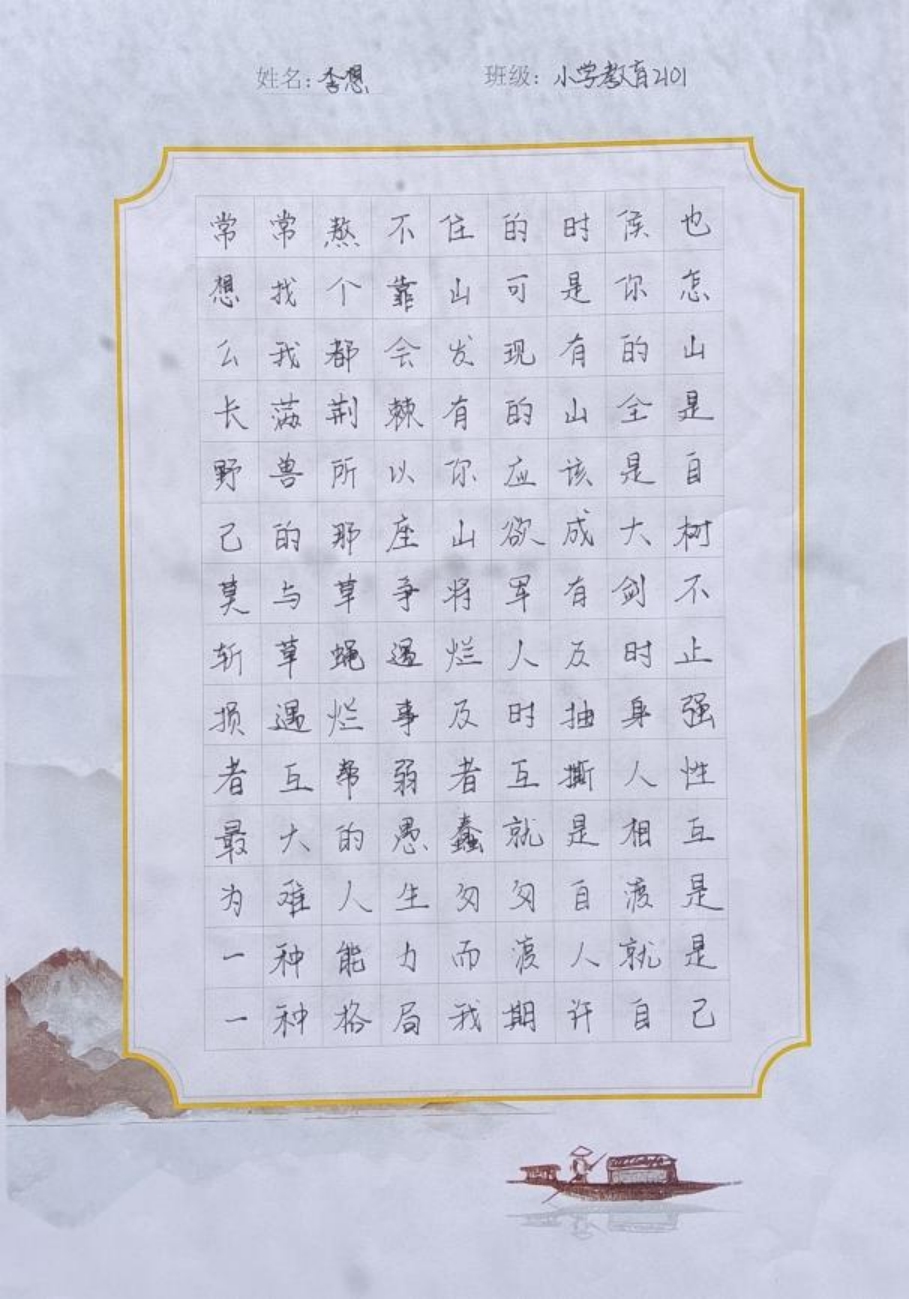 姓名：李想 班级：小学教育2101
常常熬不住的时候也
想找个靠山可是你怎
么我都会发现有的山
长满荆棘有的山全是
野兽所以你应该是自
己的那座山欲成大树
莫与草争将军有剑不
斩草蝇遇烂人及时止
损遇烂事及时抽身强
者互帮弱者互撕人性
最大的愚蠢就是相互
为难人生匆匆自渡是
一种能力而渡人就是
一种格局我期许自己